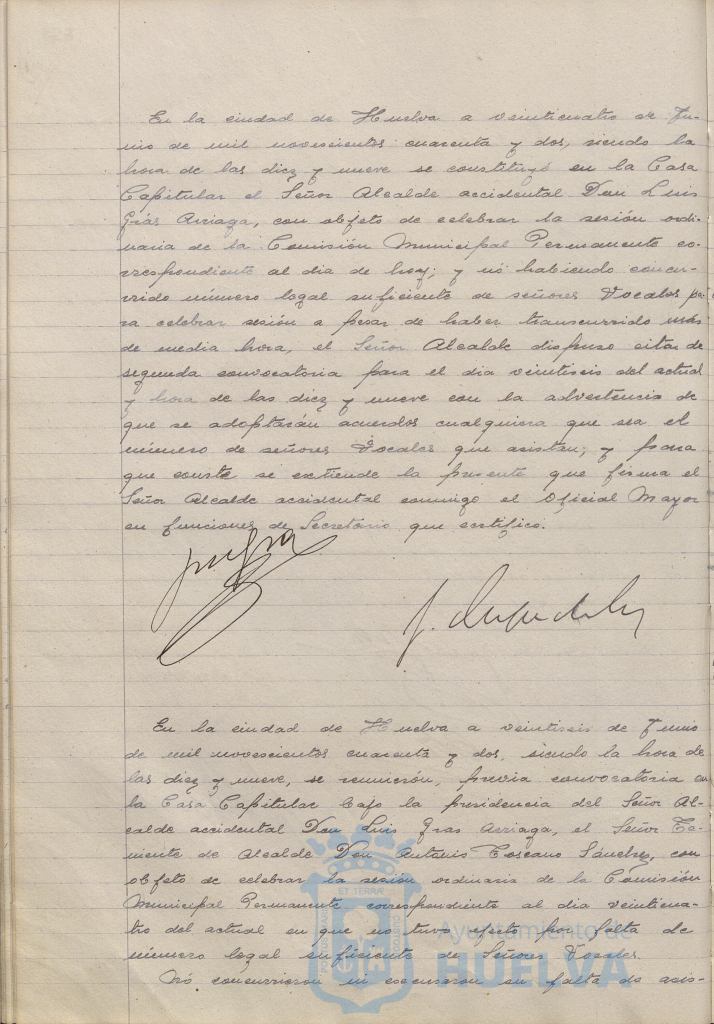 En la ciudad de Huelva a veinticuatro de Ju-
nio de mil novescientos cuarenta y dos, siendo la
hora de las diez y nueve se constituyó en la Casa
Capitular el Señor Alcalde accidental Don Luis
Gras Arriaga, con objeto de celebrar la sesión ordi-
naria de la Comisión Municipal Permanente co-
rrespondiente al dia de hoy; y no habiendo concu-
rrido número legal suficiente de señores Vocales pa-
ra celebrar sesión a pesar de haber transcurrido más
de media hora, el Señor Alcalde dispuso citar de
segunda convocatoria para el dia veintiseis del actual
y hora de las diez y nueve con la advertencia de
que se adoptarán acuerdos cualquiera que sea el
número de señores Vocales que asistan; y para
que conste se extiende la presente que firma el
Señor Alcalde accidental conmigo el Oficial Mayor
en funciones de Secretario que certifico.
En la ciudad de Huelva a veintiseis de Junio
de mil novescientos cuarenta y dos, siendo la hora de
las diez y nueve, se reunieron, previa convocatoria en
la Casa Capitular bajo la presidencia del Señor Al-
calde accidental Don Luis Gras Arriaga, el Señor Te-
niente de Alcalde Don Antonio Toscano Sánchez, con
objeto de celebrar la sesión ordinaria de la Comisión
Municipal Permanente correspondiente al dia veinticua-
tro del actual en que no tuvo efecto por falta de
número legal suficiente de Señores Vocales.
No concurrieron ni excusaron su falta de asis-
Ayuntamiento de
HUELVA